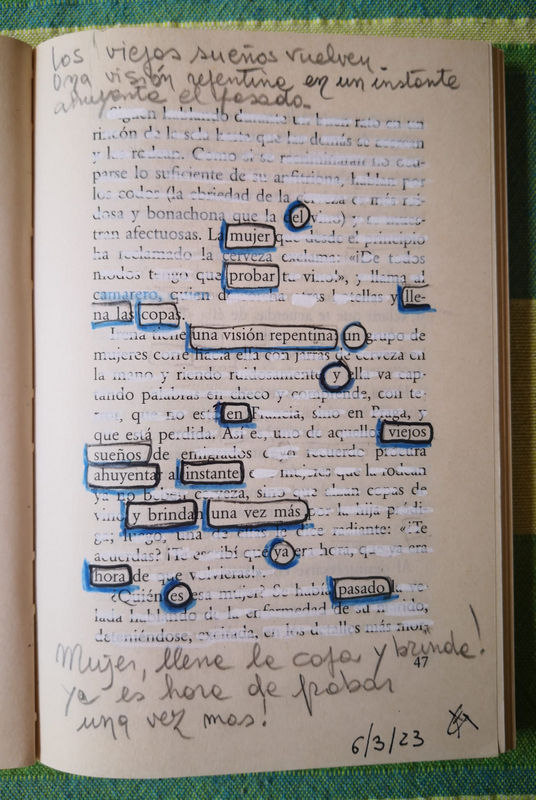 Los viejos sueños vuelven
Una visión repentina en un instante
ahuyenta el pasado.
Siguen hablando durante un buen rato en un
rincón de la sala hasta que las demás se acercan
y las rodean. Como si se recriminaran no ocu-
parse lo suficiente de su anfitriona, hablan por
los codos (la ebriedad de la cerveza es más rui-
dosa y bonachona que la del vino) y se mues-
tran afectuosas. La mujer que desde el principio
ha reclamado la cerveza exclama: «¡De todos
modos tengo que probar tu vino!», y llama al
camarero, quien botellas y lle-
na las copas.
Irena tiene una visión repentina: un grupo de
mujeres corre hacia ella con jarras de cerveza en
la mano y riendo ruidosamente y ella cap-
tando palabras en checo y comprende, con te-
rror, que no está en Francia, sino en Praga, y
que está perdida. Así es, uno de aquellos viejos
sueños de emigrados cuyo recuerdo procura
ahuyentar al instante mujeres que la rodean
ya no beben cerveza, sino que alzan copas de
vino y brindan una vez más por la hija pródi-
ga; luego, una de ellas le dice radiante: «¿Te
acuerdas? ¡Te escribí que ya era hora, que ya era
hora de que volvieras!».
¿Quién es esa mujer? Se había pasado la ve-
lada hablando de la enfermedad de su marido,
deteniéndose, excitada, en los detalles más mor-
47
Mujer, llene la copa y brinda!
ya es hora de probar
una vez mas!
6/3/23